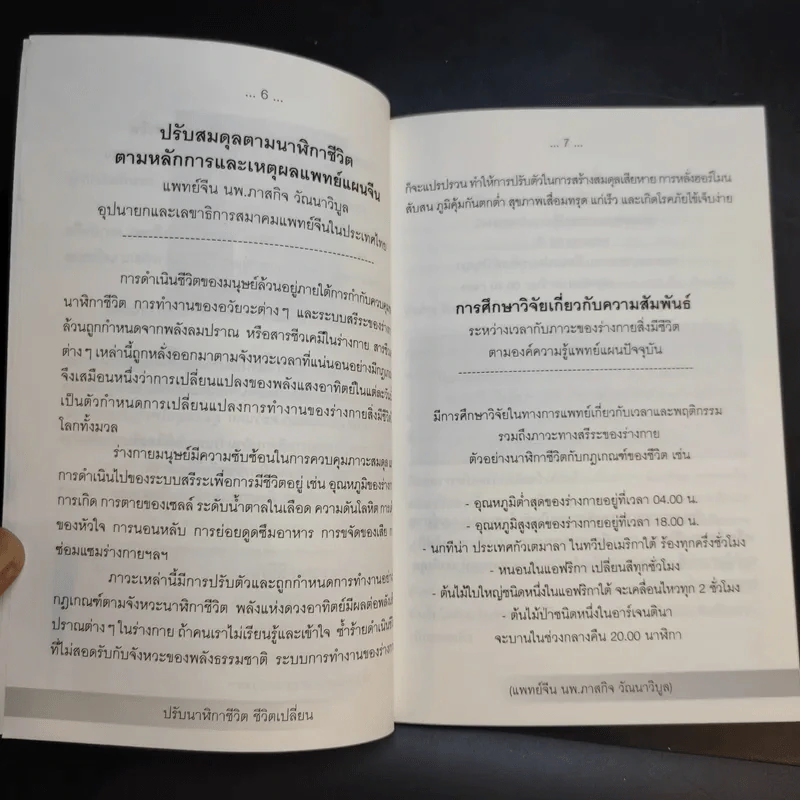 ... 6 ...
ปรับสมดุลตามนาฬิกาชีวิต
ตามหลักการและเหตุผลแพทย์แผนจีน
แพทย์จีน นพ.ภาสกิจ วัณนาวิบูล
อุปนายกและเลขาธิการสมาคมแพทย์จีนในประเทศไทย
การดำเนินชีวิตของมนุษย์ล้วนอยู่ภายใต้การกำกับควบคุม
นาฬิกาชีวิต การทำงานของอวัยวะต่างๆ และระบบสรีระของร่าง
ล้วนถูกกำหนดจากพลังลมปราณ หรือสารชีวเคมีในร่างกาย
ต่างๆ เหล่านี้ถูกหลั่งออกมาตามจังหวะเวลาที่แน่นอนอย่างมีกฎ
จึงเสมือนหนึ่งว่าการเปลี่ยนแปลงของพลังแสงอาทิตย์ในแต่ละ
เป็นตัวกำหนดการเปลี่ยนแปลงการทำงานของร่างกายสิ่งมีชีวิต
โลกทั้งมวล
ร่างกายมนุษย์มีความซับซ้อนในการควบคุมภาวะสมดุล
การดำเนินไปของระบบสรีระเพื่อการมีชีวิตอยู่ เช่น อุณหภูมิของร่าง
การเกิด การตายของเซลล์ ระดับน้ำตาลในเลือด ความดันโลหิต
ของหัวใจ การนอนหลับ การย่อยดูดซึมอาหาร การขจัดของเสีย
ซ่อมแซมร่างกายฯลฯ
ภาวะเหล่านี้มีการปรับตัวและถูกกำหนดการทำงานอย่าง
กฎเกณฑ์ตามจังหวะนาฬิกาชีวิต พลังแห่งดวงอาทิตย์มีผลต่อพลัง
ปราณต่างๆ ในร่างกาย ถ้าคนเราไม่เรียนรู้และเข้าใจ ซ้ำร้ายดำเนิน
ที่ไม่สอดรับกับจังหวะของพลังธรรมชาติ ระบบการทำงานของร่าง
ปรับนาฬิกาชีวิต ชีวิตเปลี่ยน
... 7 ...
ก็จะแปรปรวน ทำให้การปรับตัวในการสร้างสมดุลเสียหาย การหลั่งฮอร์โมน
สับสน ภูมิคุ้มกันตกต่ำ สุขภาพเสื่อมทรุด แก่เร็ว และเกิดโรคภัยไข้เจ็บง่าย
การศึกษาวิจัยเกี่ยวกับความสัมพันธ์
ระหว่างเวลากับภาวะของร่างกายสิ่งมีชีวิต
ตามองค์ความรู้แพทย์แผนปัจจุบัน
มีการศึกษาวิจัยในทางการแพทย์เกี่ยวกับเวลาและพฤติกรรม
รวมถึงภาวะทางสรีระของร่างกาย
ตัวอย่างนาฬิกาชีวิตกับกฎเกณฑ์ของชีวิต เช่น
- อุณหภูมิต่ำสุดของร่างกายอยู่ที่เวลา 04.00 น.
- อุณหภูมิสูงสุดของร่างกายอยู่ที่เวลา 18.00 น.
- นกทีน่า ประเทศกัวเตมาลา ในทวีปอเมริกาใต้ ร้องทุกครึ่งชั่วโมง
- หนอนในแอฟริกา เปลี่ยนสีทุกชั่วโมง
- ต้นไม้ใบใหญ่ชนิดหนึ่งในแอฟริกาใต้ จะเคลื่อนไหวทุก 2 ชั่วโมง
- ต้นไม้ป่าชนิดหนึ่งในอาร์เจนตินา
จะบานในช่วงกลางคืน 20.00 นาฬิกา
(แพทย์จีน นพ.ภาสกิจ วัณนาวิบูล)